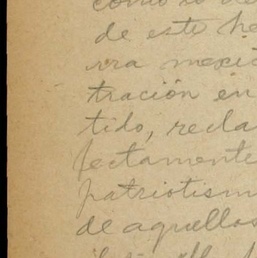 como
de este he
rra mexic
tración en
tido, recla
fectamente
patriotism
de aquellos